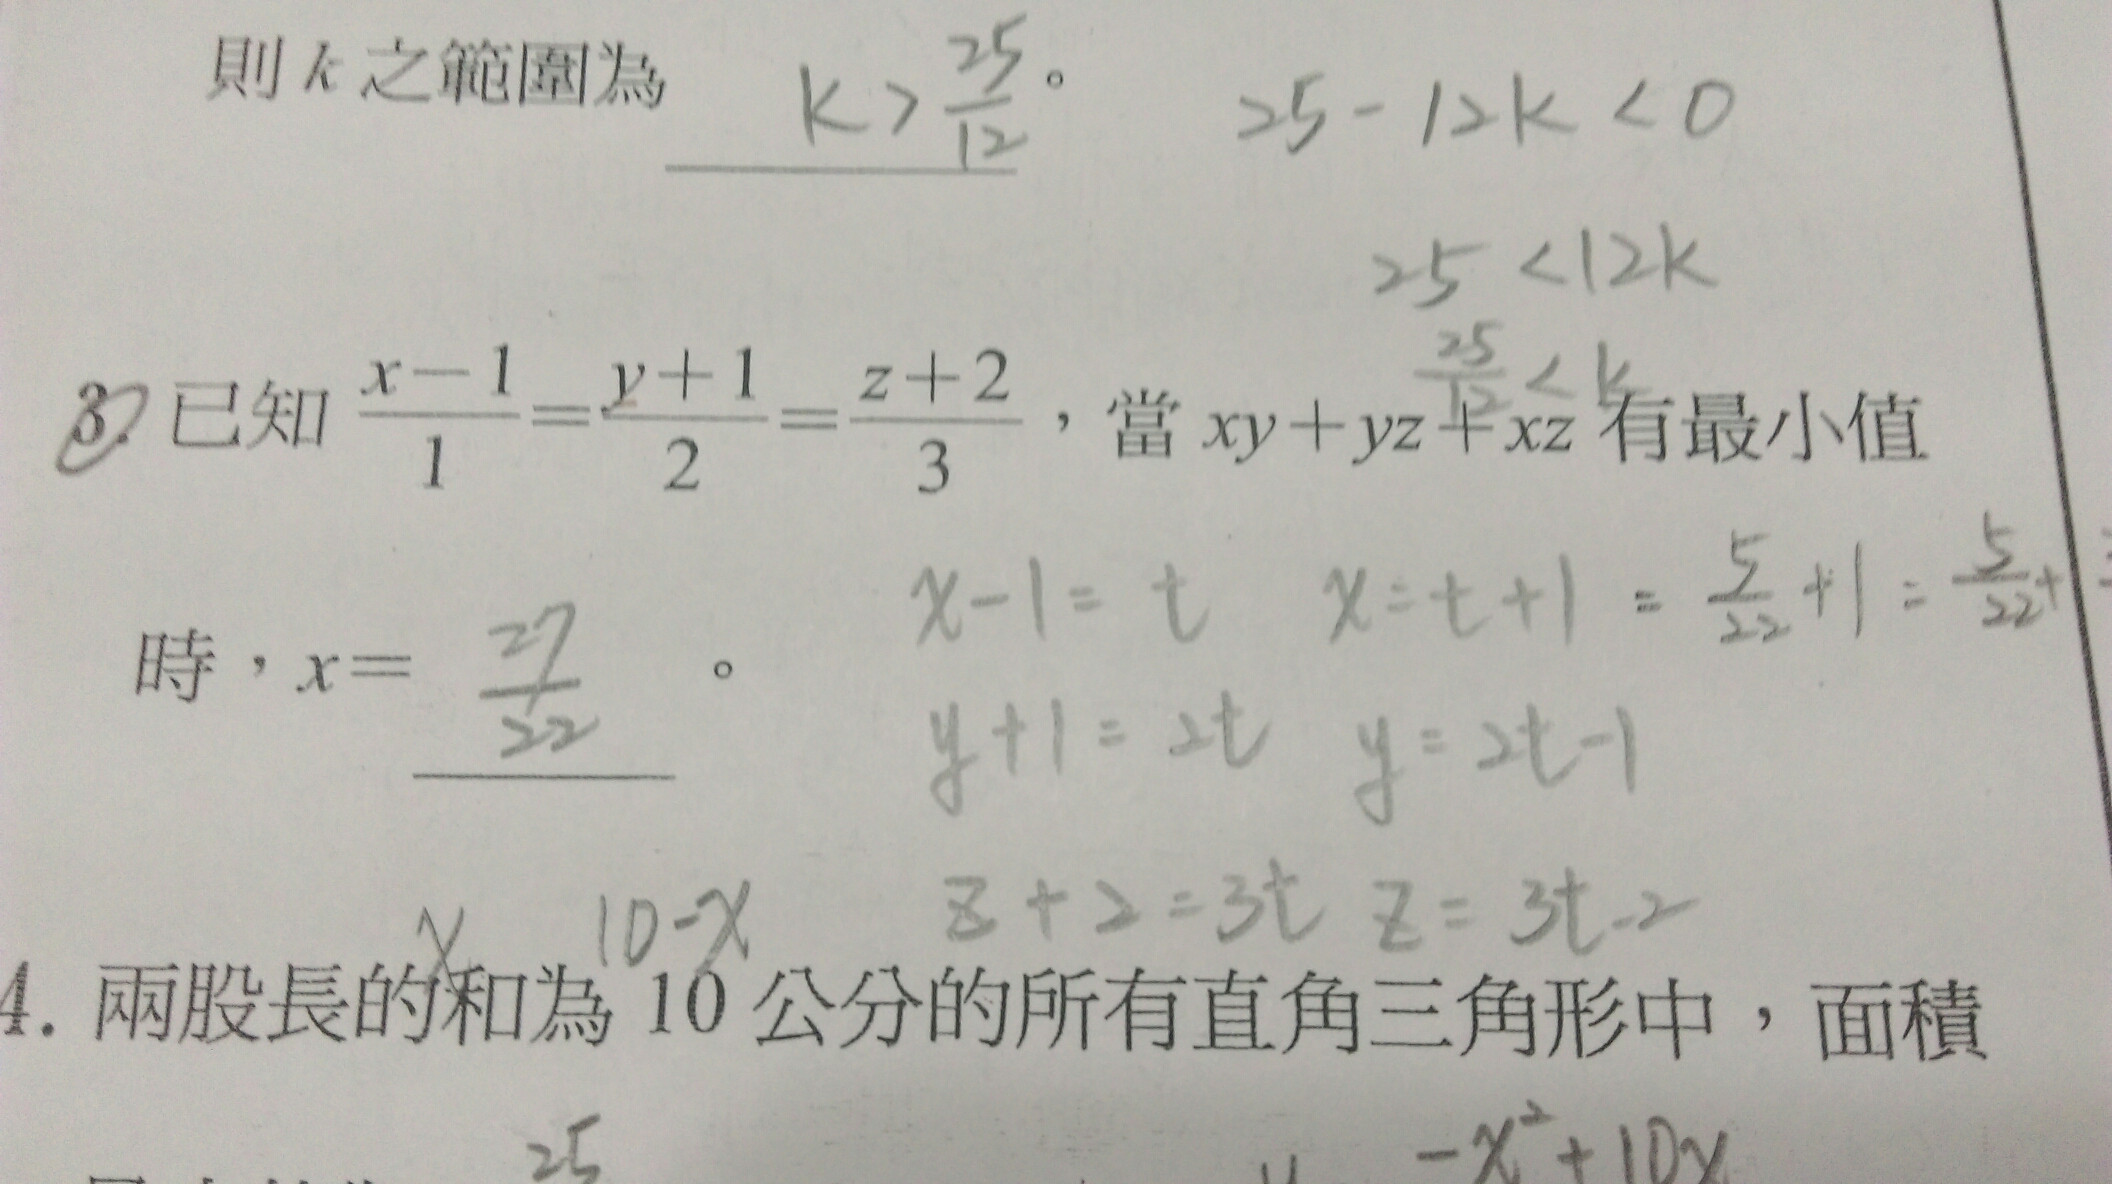 則 k 之範圍為 k > 25/12 。 25 - 12k < 0
25 < 12k
25/12 < k
3. 已知 (x-1)/1 = (y+1)/2 = (z+2)/3 ，當 xy+yz+xz 有最小值
x-1 = t x = t+1 = 5/22 + 1 = 5/22 +
時，x= 27/22 。
y+1 = 2t y = 2t-1
z+2 = 3t z = 3t-2
x 10-x
4. 兩股長的和為 10 公分的所有直角三角形中，面積
25 -x²+10x